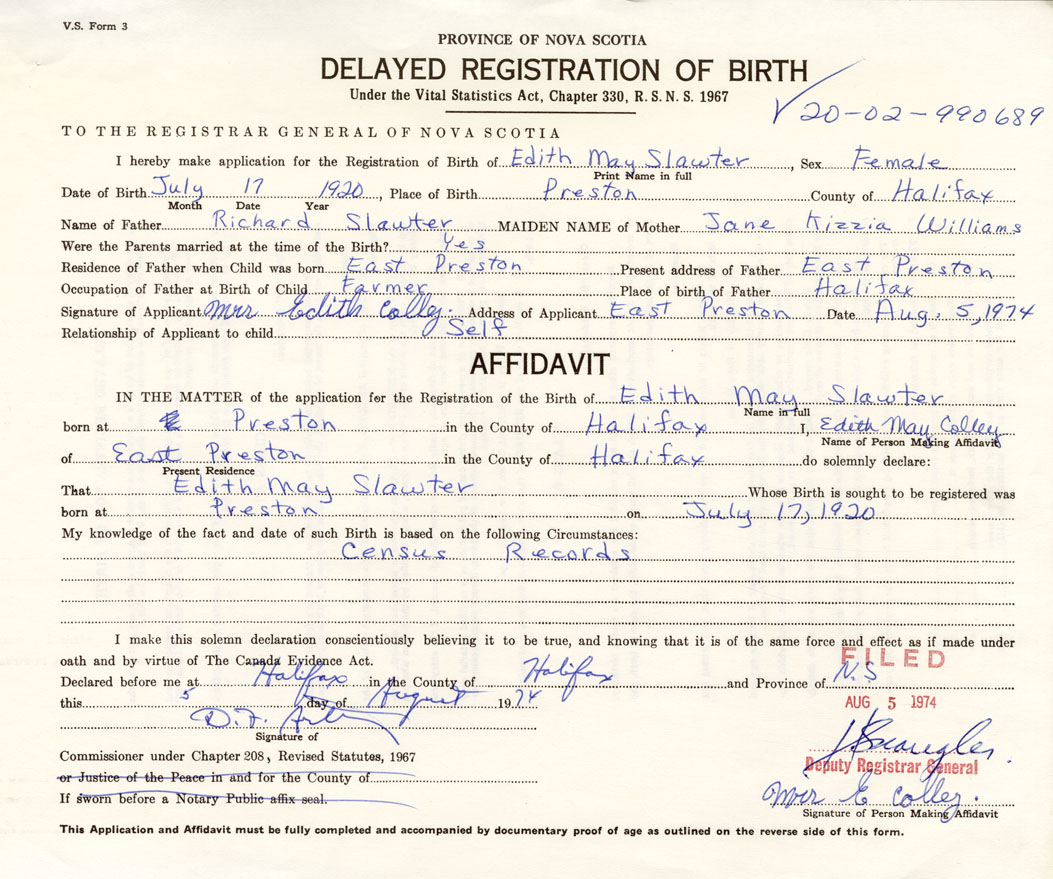 V.S. Form 3
PROVINCE OF NOVA SCOTIA
DELAYED REGISTRATION OF BIRTH
Under the Vital Statistics Act, Chapter 330, R. S. N. S. 1967
20-02-990689
TO THE REGISTRAR GENERAL OF NOVA SCOTIA
I hereby make application for the Registration of Birth of Edith May Slawter, Sex Female
Print Name in full
Date of Birth July 17 1920, Place of Birth Preston County of Halifax
Month Date Year
Name of Father Richard Slawter MAIDEN NAME of Mother Jane Kizzia Williams
Were the Parents married at the time of the Birth? Yes
Residence of Father when Child was born East Preston Present address of Father East Preston
Occupation of Father at Birth of Child Farmer Place of birth of Father Halifax
Signature of Applicant Mrs Edith Colley. Address of Applicant East Preston Date Aug. 5, 1974
Relationship of Applicant to child Self
AFFIDAVIT
IN THE MATTER of the application for the Registration of the Birth of Edith May Slawter
Name in full
born at Preston in the County of Halifax I, Edith May Colley
Name of Person Making Affidavit
of East Preston in the County of Halifax do solemnly declare:
Present Residence
That Edith May Slawter Whose Birth is sought to be registered was
born at Preston on July 17, 1920
My knowledge of the fact and date of such Birth is based on the following Circumstances:
Census Records
I make this solemn declaration conscientiously believing it to be true, and knowing that it is of the same force and effect as if made under
oath and by virtue of The Canada Evidence Act.
FILED
Declared before me at Halifax in the County of Halifax and Province of N.S
this 5 day of August 1974
AUG 5 1974
D. F.
Signature of
Commissioner under Chapter 208, Revised Statutes, 1967
or Justice of the Peace in and for the County of
Deputy Registrar General
If sworn before a Notary Public affix seal.
Mrs E Colley.
Signature of Person Making Affidavit
This Application and Affidavit must be fully completed and accompanied by documentary proof of age as outlined on the reverse side of this form.